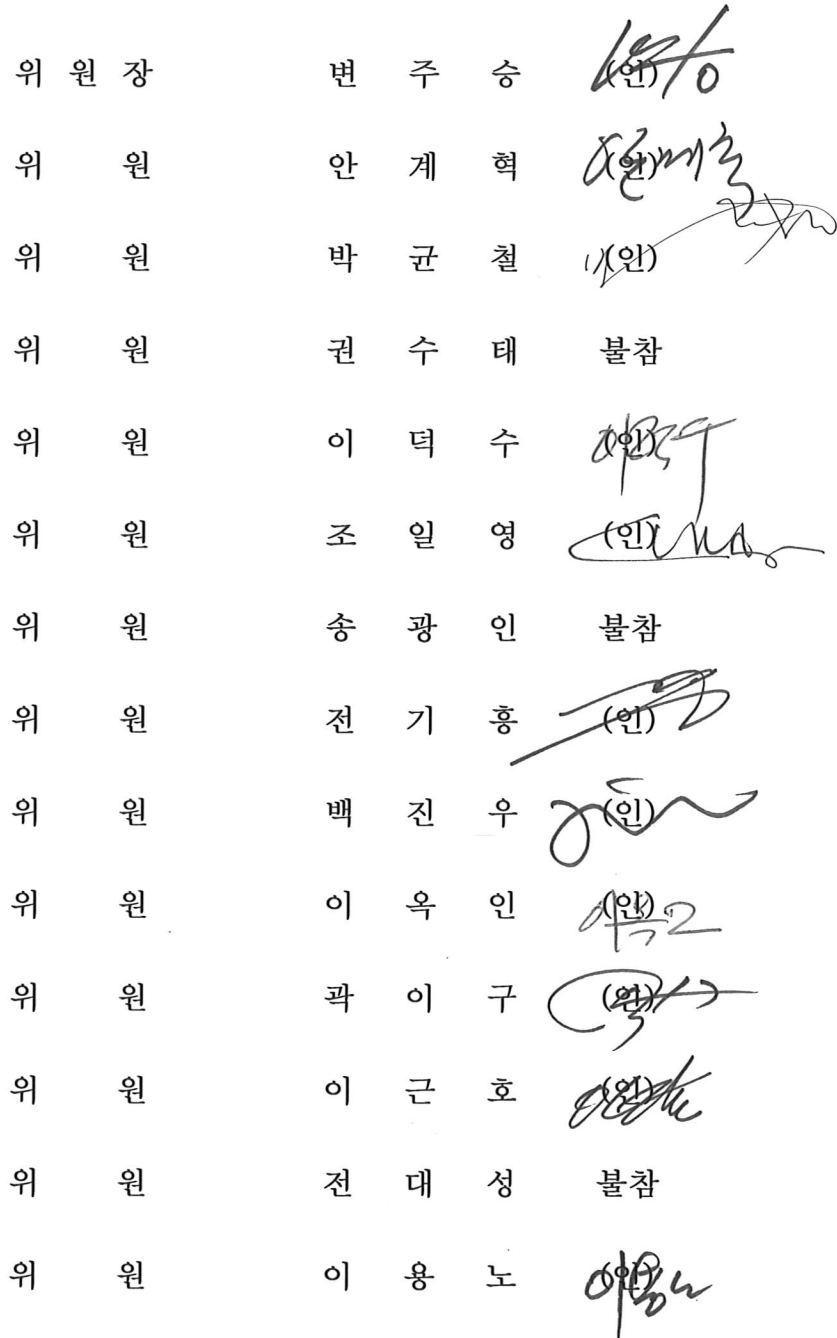 위 원 장 변 주 승 (인)
위 원 안 계 혁 (인)
위 원 박 균 철 (인)
위 원 권 수 태 불참
위 원 이 덕 수 (인)
위 원 조 일 영 (인)
위 원 송 광 인 불참
위 원 전 기 흥 (인)
위 원 백 진 우 (인)
위 원 이 옥 인 (인)
위 원 곽 이 구 (인)
위 원 이 근 호 (인)
위 원 전 대 성 불참
위 원 이 용 노 (인)